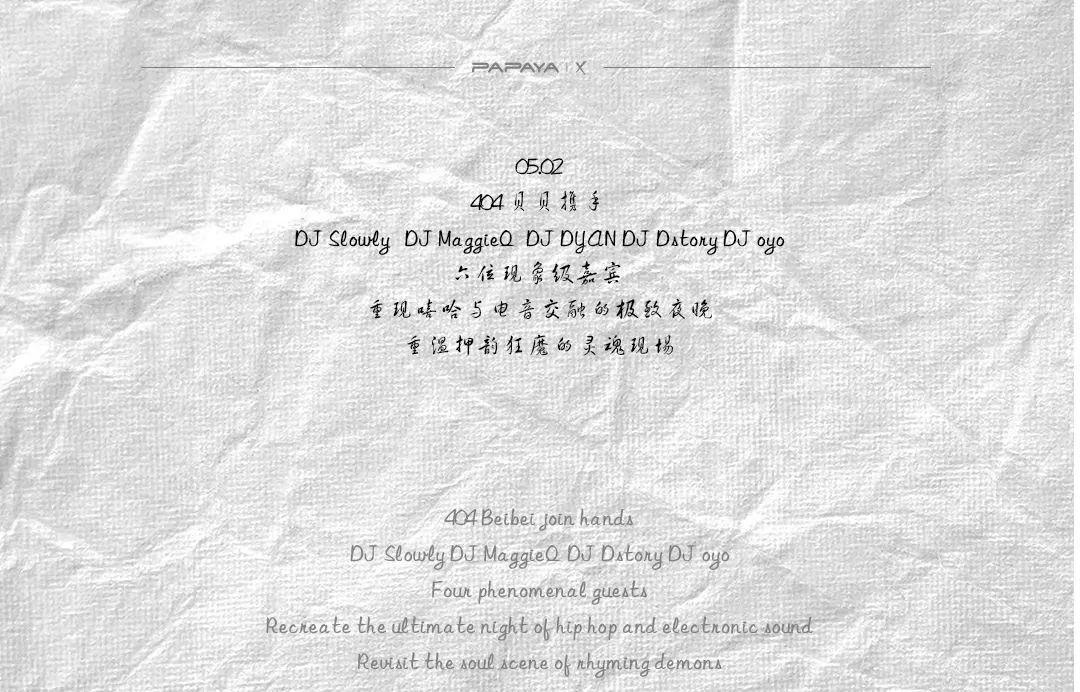 PAPAYA | X
05.02
404 贝贝携手
DJ Slowly DJ MaggieQ DJ DYAN DJ Dstory DJ oyo
六位现象级嘉宾
重现嘻哈与电音交融的极致夜晚
重温押韵狂魔的灵魂现场
404 Beibei join hands
DJ Slowly DJ MaggieQ DJ Dstory DJ oyo
Four phenomenal guests
Recreate the ultimate night of hip hop and electronic sound
Revisit the soul scene of rhyming demons